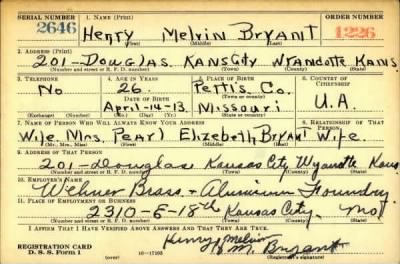 SERIAL NUMBER 1. NAME (Print) ORDER NUMBER
2646 Henry Melvin Bryant 1226
(First) (Middle) (Last)
2. ADDRESS (Print)
201—Douglas. KansCity Wyandotte Kans
(Number and street or R. F. D. number) (Town) (County) (State)
3. TELEPHONE 4. AGE IN YEARS 5. PLACE OF BIRTH 6. COUNTRY OF CITIZENSHIP
No 26. Pettis Co.
DATE OF BIRTH (Town or county)
April-14-13. Missouri U.A.
(Exchange) (Number) (Mo.) (Day) (Yr.) (State or country)
7. NAME OF PERSON WHO WILL ALWAYS KNOW YOUR ADDRESS 8. RELATIONSHIP OF THAT PERSON
Wife. Mrs. Pearl Elizebeth Bryant Wife
(Mr., Mrs., Miss) (First) (Middle) (Last)
9. ADDRESS OF THAT PERSON
201—Douglas Kansas City Wyanotte Kans
(Number and street or R. F. D. number) (Town) (County) (State)
10. EMPLOYER'S NAME
Brass. + Foundry.
11. PLACE OF EMPLOYMENT OR BUSINESS
2310-E-18th Kansas City. Mo
(Number and street or R. F. D. number) (Town) (County) (State)
I AFFIRM THAT I HAVE VERIFIED ABOVE ANSWERS AND THAT THEY ARE TRUE.
REGISTRATION CARD Henry Melvin
D. S. S. Form 1 16—17105 M. Bryant